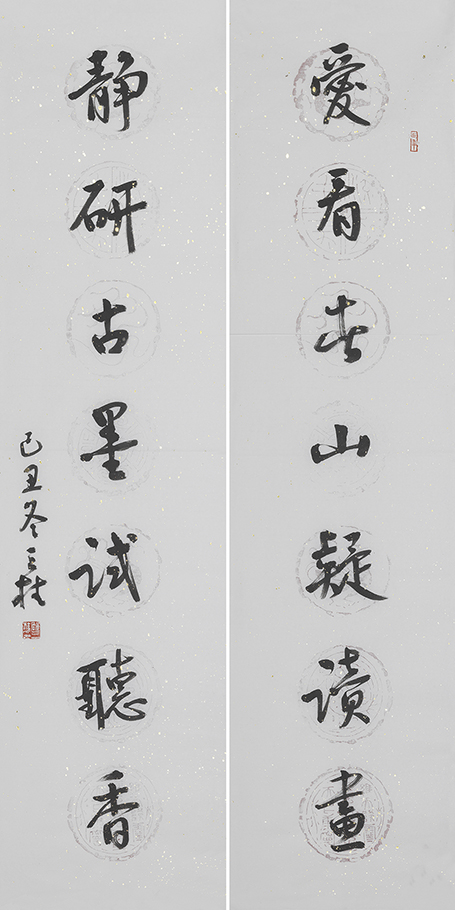 愛看春山疑讀畫
靜研古墨試聽香
己丑冬